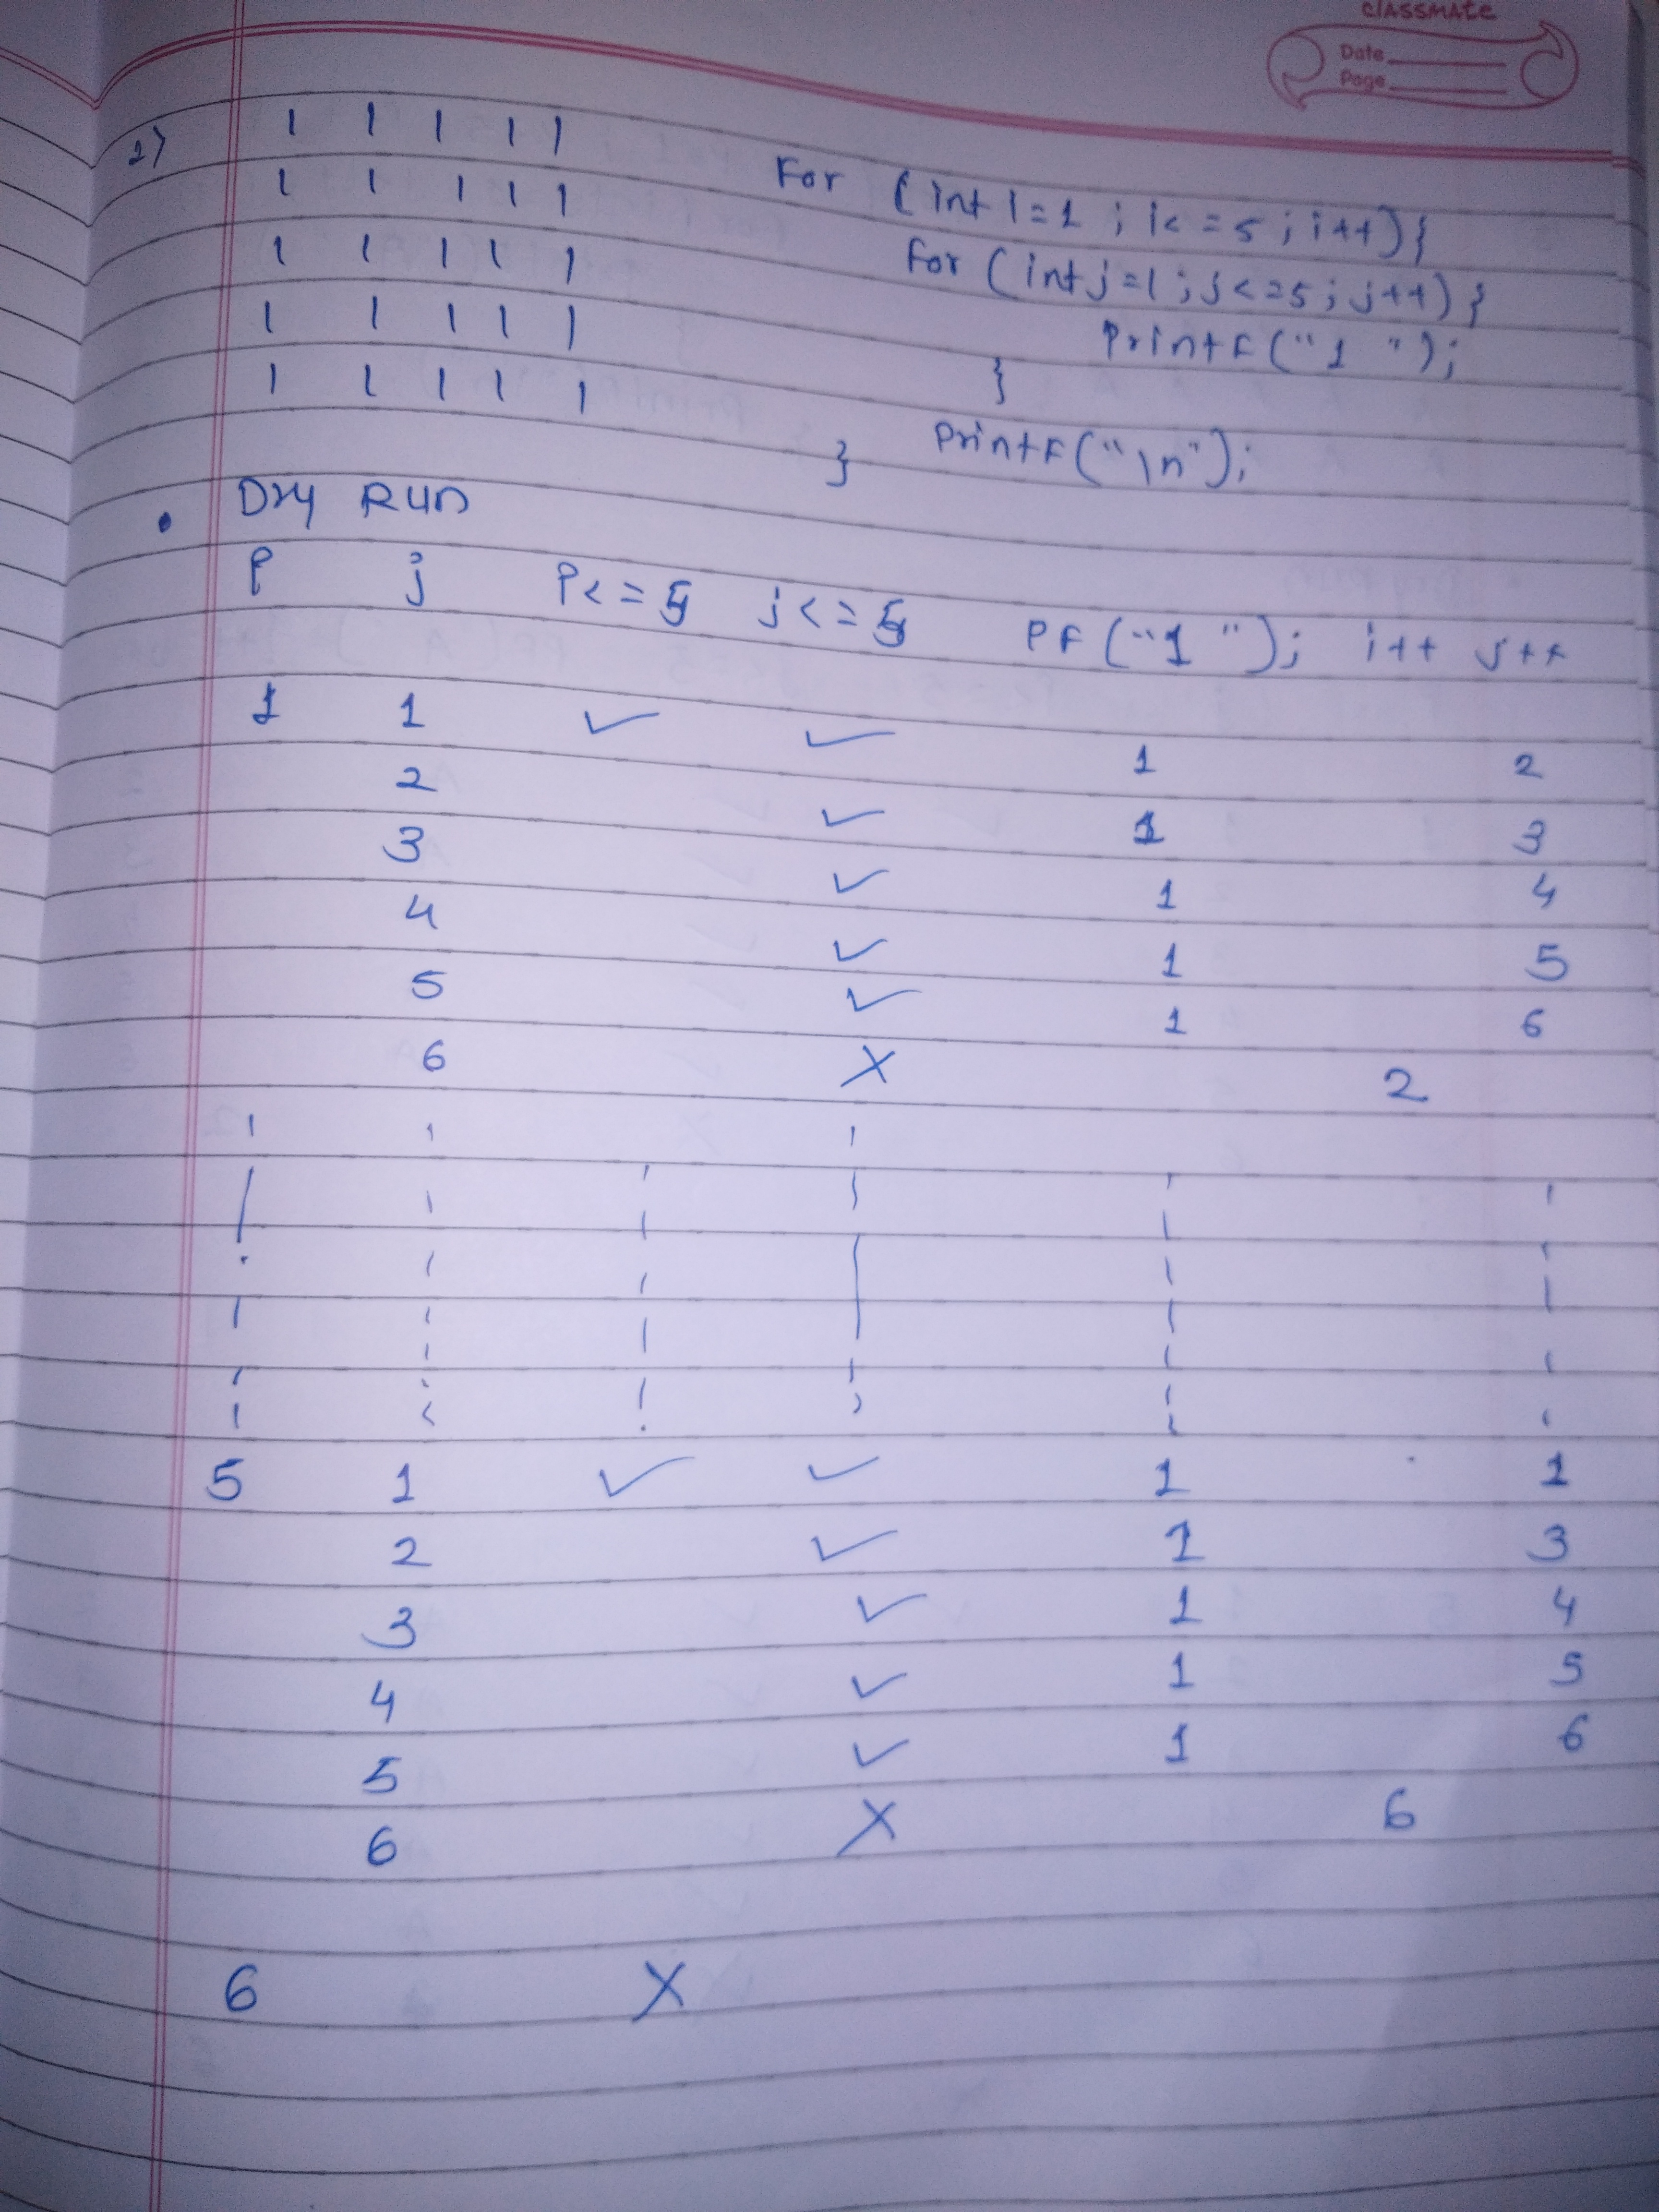 classmate
Date
Page
2)
1 1 1 1 1
1 1 1 1 1
1 1 1 1 1
1 1 1 1 1
1 1 1 1 1
For (int i=1 ; i<=5 ; i++){
For (int j=1 ; j<=5 ; j++){
Printf("1 ");
}
Printf("\n");
}
• Dry Run
i j i<=5 j<=5 PF("1 "); i++ j++
1 1 ✓ ✓ 1 2
2 ✓ 1 3
3 ✓ 1 4
4 ✓ 1 5
5 ✓ 1 6
6 X 2
5 1 ✓ ✓ 1 1
2 ✓ 1 3
3 ✓ 1 4
4 ✓ 1 5
5 ✓ 1 6
6 X 6
6 X